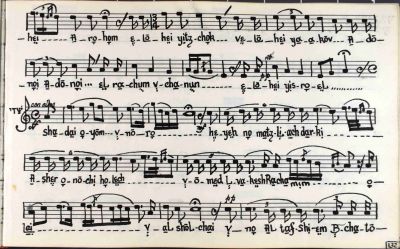 -hei A-ro-hom e-lo-hei yitz-chok .. ve-lo-hei ya-a-kov... A-do-
noi A-do-noi... el ra-chum v'cha-nun ........ e-lo-hei yis-ro-el............
sha-dai o-yom... v'no-ro he-yeh no matz-li-ach dar-ki
A-sher o-no-chi ho-lech v'o-med l'va-kesh Racha mim .... o-
lai v'al shol-chai v'no al taf-shi-em B-cha-to-